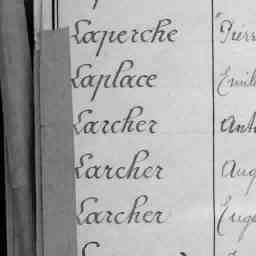 Laperche Pierr
Laplace Emil
Larcher Anto
Larcher Aug
Larcher Euge